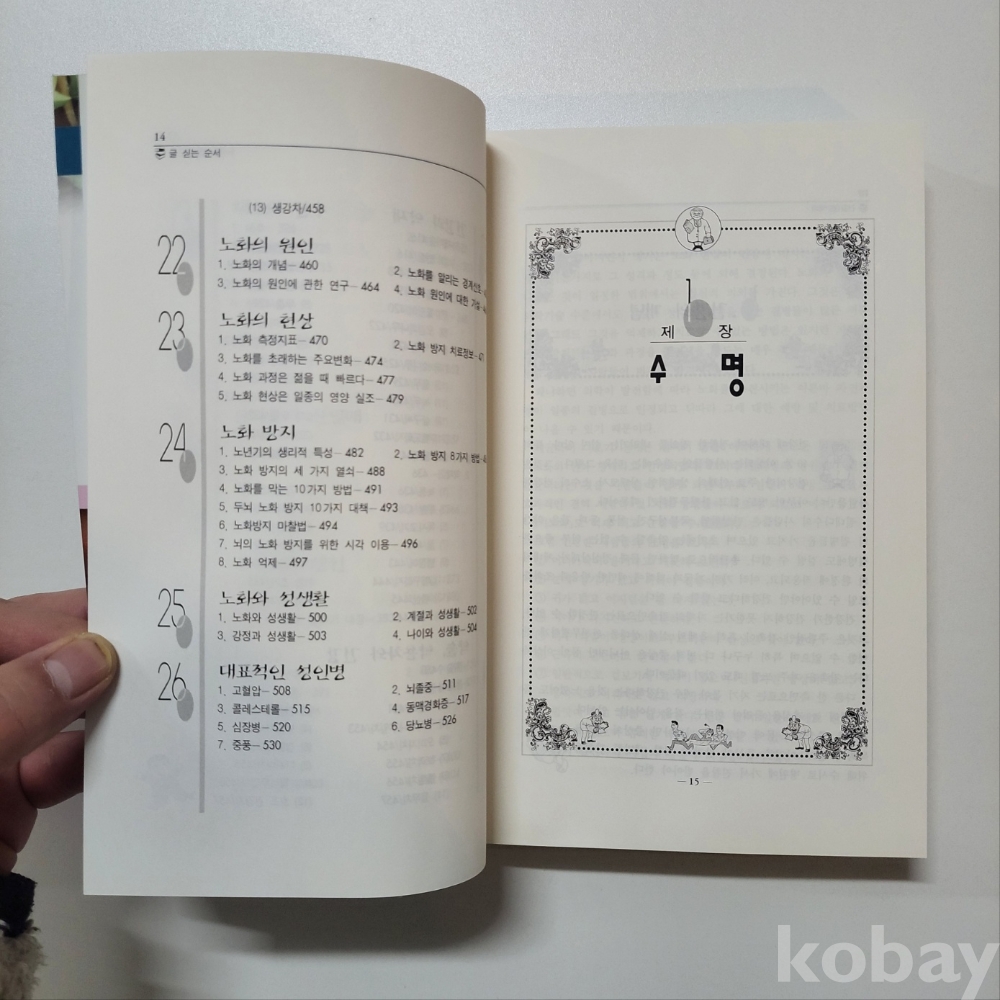 14
글 싣는 순서
(13) 생강차/458
22 노화의 원인
1. 노화의 개념- 460 2. 노화를 알리는 경계신호-
3. 노화의 원인에 관한 연구- 464 4. 노화 원인에 대한 가설-
23 노화의 현상
1. 노화 측정지표- 470 2. 노화 방지 치료정보-
3. 노화를 초래하는 주요변화- 474
4. 노화 과정은 젊을 때 빠르다- 477
5. 노화 현상은 일종의 영양 실조- 479
24 노화 방지
1. 노년기의 생리적 특성- 482 2. 노화 방지 8가지 방법-
3. 노화 방지의 세 가지 열쇠- 488
4. 노화를 막는 10가지 방법- 491
5. 두뇌 노화 방지 10가지 대책- 493
6. 노화방지 마찰법- 494
7. 뇌의 노화 방지를 위한 시각 이용- 496
8. 노화 억제- 497
25 노화와 성생활
1. 노화와 성생활- 500 2. 계절과 성생활- 502
3. 감정과 성생활- 503 4. 나이와 성생활- 504
26 대표적인 성인병
1. 고혈압- 508 2. 뇌졸중- 511
3. 콜레스테롤- 515 4. 동맥경화증- 517
5. 심장병- 520 6. 당뇨병- 526
7. 중풍- 530
제 1 장
수 명
— 15 —
kobay